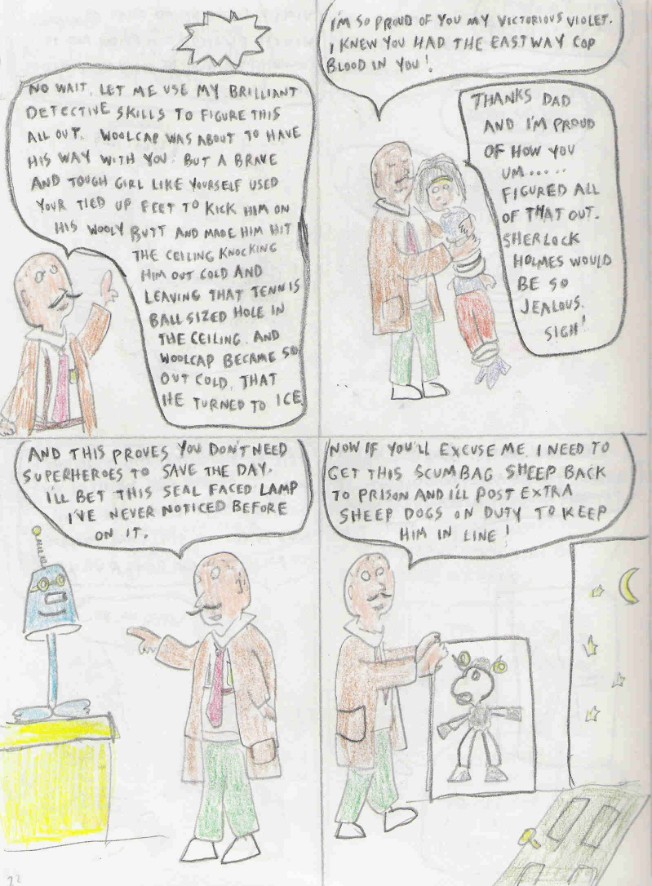 NO WAIT. LET ME USE MY BRILLIANT
DETECTIVE SKILLS TO FIGURE THIS
ALL OUT. WOOLCAP WAS ABOUT TO HAVE
HIS WAY WITH YOU. BUT A BRAVE
AND TOUGH GIRL LIKE YOURSELF USED
YOUR TIED UP FEET TO KICK HIM ON
HIS WOOLY BUTT AND MADE HIM HIT
THE CEILING KNOCKING
HIM OUT COLD AND
LEAVING THAT TENNIS
BALL SIZED HOLE IN
THE CEILING. AND
WOOLCAP BECAME SO
OUT COLD, THAT
HE TURNED TO ICE
I'M SO PROUD OF YOU MY VICTORIOUS VIOLET.
I KNEW YOU HAD THE EASTWAY COP
BLOOD IN YOU!
THANKS DAD
AND I'M PROUD
OF HOW YOU
UM.....
FIGURED ALL
OF THAT OUT.
SHERLOCK
HOLMES WOULD
BE SO
JEALOUS.
SIGH!
AND THIS PROVES YOU DON'T NEED
SUPERHEROES TO SAVE THE DAY.
I'LL BET THIS SEAL FACED LAMP
I'VE NEVER NOTICED BEFORE
ON IT.
NOW IF YOU'LL EXCUSE ME, I NEED TO
GET THIS SCUMBAG SHEEP BACK
TO PRISON AND I'LL POST EXTRA
SHEEP DOGS ON DUTY TO KEEP
HIM IN LINE!